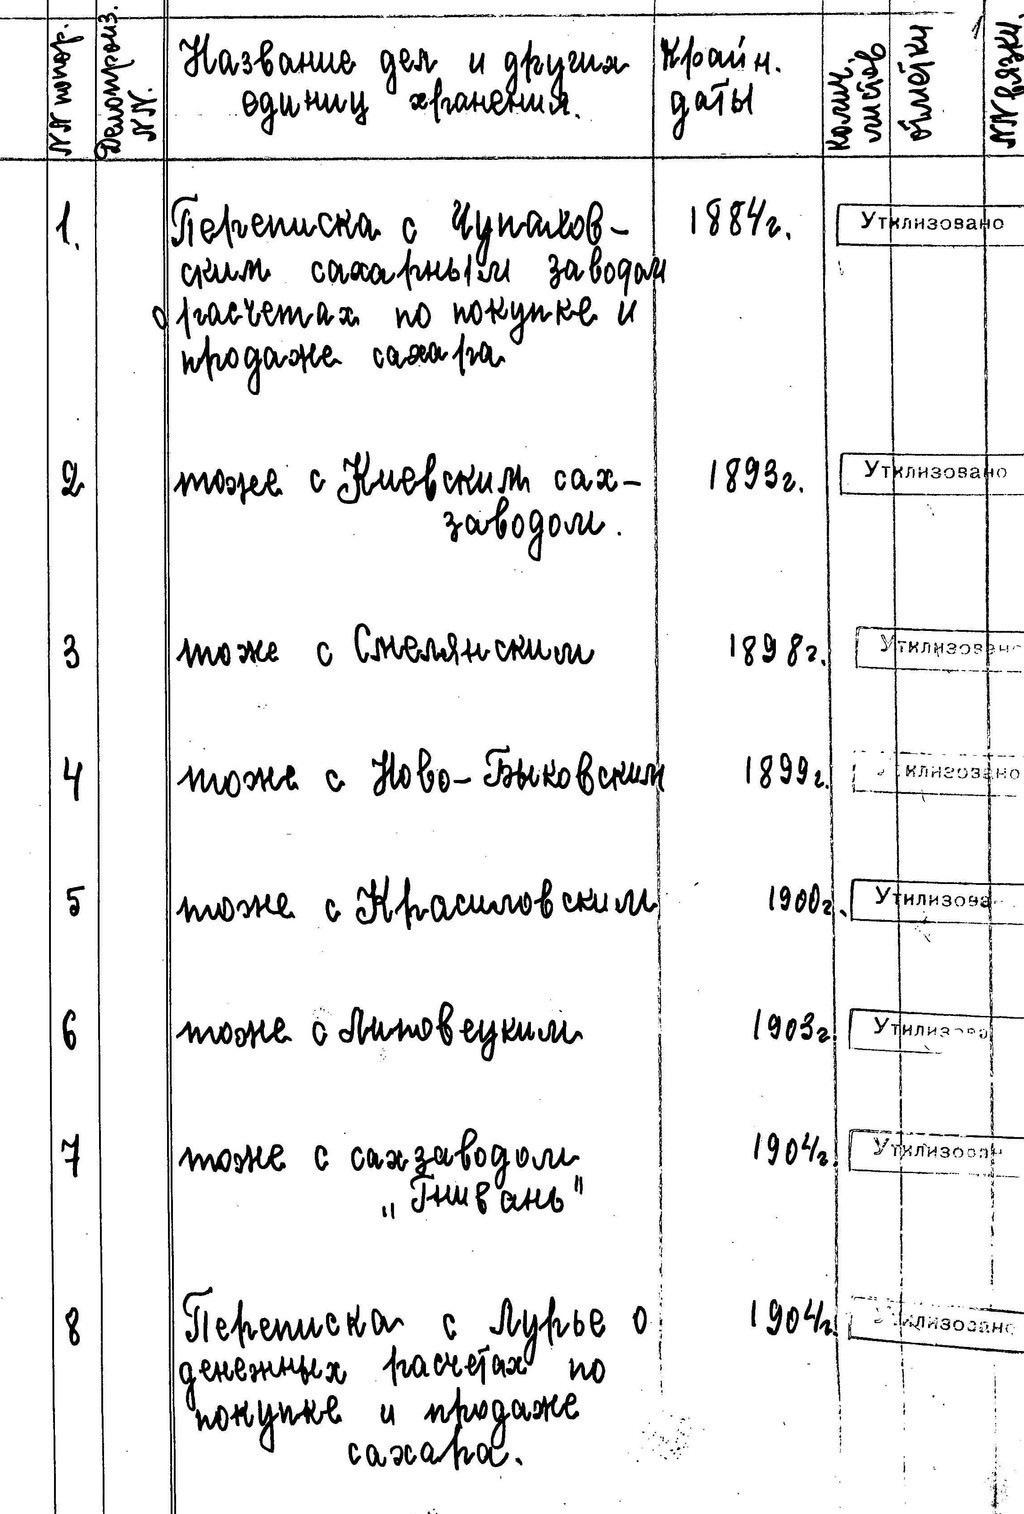 1
NN попор.
Делопроиз. NN.
Название дел и других
единиц хранения.
Крайн.
даты
колич. листов
отметки
NN вязки.
1. Переписка с Чупахов-
ским сахарным заводом
о расчетах по покупке и
продаже сахара
1884г.
Утилизовано
2 тоже с Киевским сах-
заводом.
1893г.
Утилизовано
3 тоже с Смелянским 1898г. Утилизовано
4 тоже с Ново-Быковским 1899г. тилизовано
5 тоже с Красиловским 1900г. Утилизова
6 тоже с Липовецким 1903г. Утилизова
7 тоже с сахзаводом
„Гнивань"
1904г. Утилизован
8 Переписка с Лурье о
денежных расчетах по
покупке и продаже
сахара.
1904г. Утилизовано